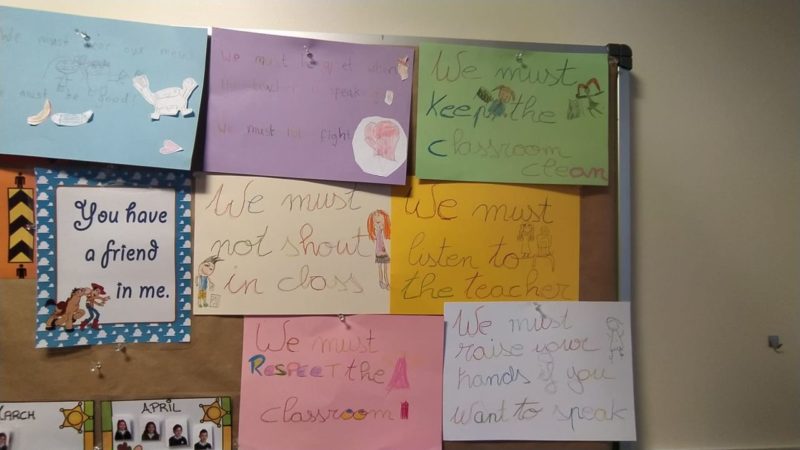 must for our
must be good!
We must be quiet when
the teacher is speaking
We must not fight
We must
Keep the
classroom
clean
You have
a friend
in me.
We must
not shout
in class
We must
listen to
the teacher
We must
RESPECT the
classroom
We must
raise your
hands if you
want to speak
MARCH
APRIL